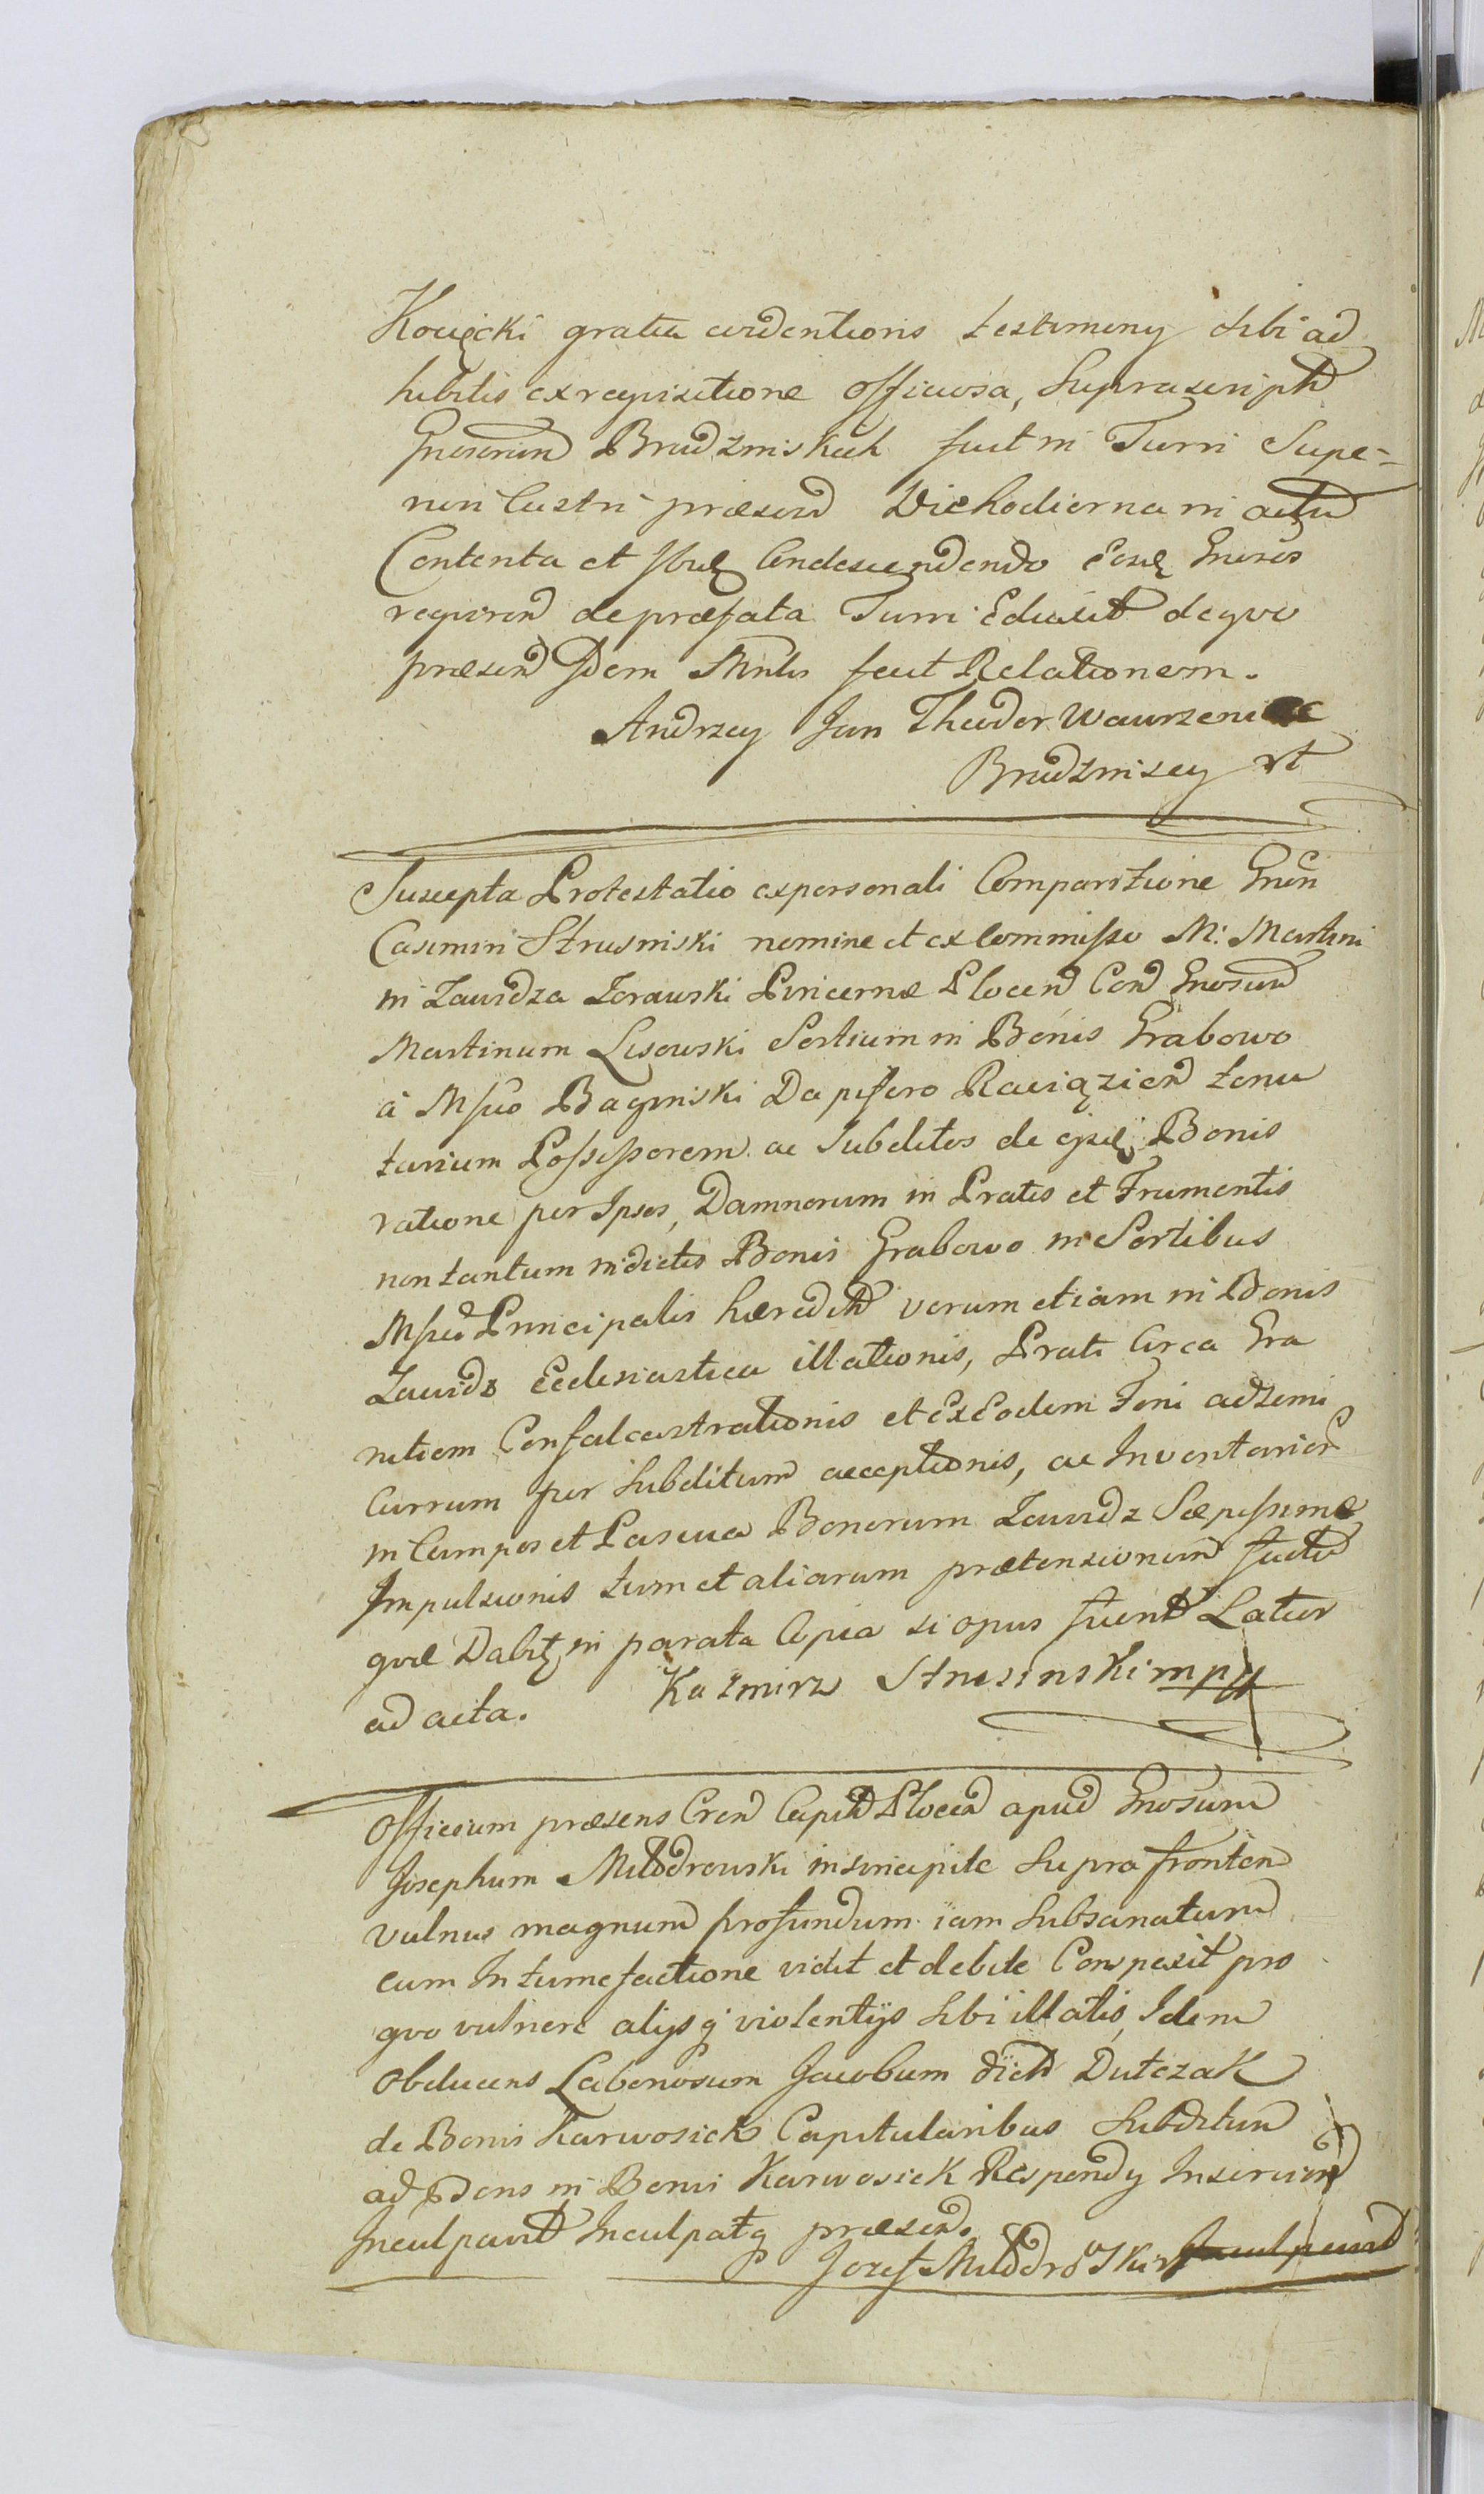 Kocięcki gratia evidentioris testimony sibi ad
hibitis exrequisitione officiosa, Suprascripth
Gnosorum Brudzinskich fuit in Turri Supe-
riori Castri praesend Diehodierna in actu
Contenta et Condescendendo Gnosos
requirend depraefata Turri Eduxit dequo
praesend Idem Mnlis fecit Relationem.
Andrzey Jan Theodor Wawrzeniec
Brudzinscy

Suscepta Protestatio expersonali Comparitione Gnen
Casimiri Strusinski nomine et excommisso M: Martini
in Zawidza Zorawski Pincernae Plocend Con Gnosum
Martinum Lisowski Sortium in Bonis Grabowo
à Msco Baginski Dapifero Raciąziend tenu
tarium Possessorem ac Subditos de Bonis
ratione per Ipsos, Damnorum in Pratis et Frumentis
nontantum indictis Bonis Grabowo in Sortibus
Principalis haeredith verum etiam in Bonis
Zawidz Ecclesiastica illationis, Prati Circa Gra
nitiem Confalcastrationis et ExEodem Feni adsemi
Currum per Subditum acceptionis, ac Inventarior
in Campos et Pascua Bonorum Zawidz Saepissime
Impulsionis tum et aliarum praetensionum factu
quae in parata Copia si opus fuerit Latius
ad acta. Kazmirz Strusinski mpp

Officium praesens Cren Capith Plocen apud Gnosum
Josephum Młodzrowski insincipite Supra frontem
vulnus magnum profundum iam Subsanatum
cum Intumefactione vidit et debite Conspexit pro
quo vulnere alijsq violentijs Sibi illatis, Idem
Obducens Laboriosum Jacobum dicth Dutczak
de Bonis Karwosiek Capitularibus Subditum
ad in Bonis Karwosiek Inservien
Inculpavit Inculpatq praesend.
Jozef